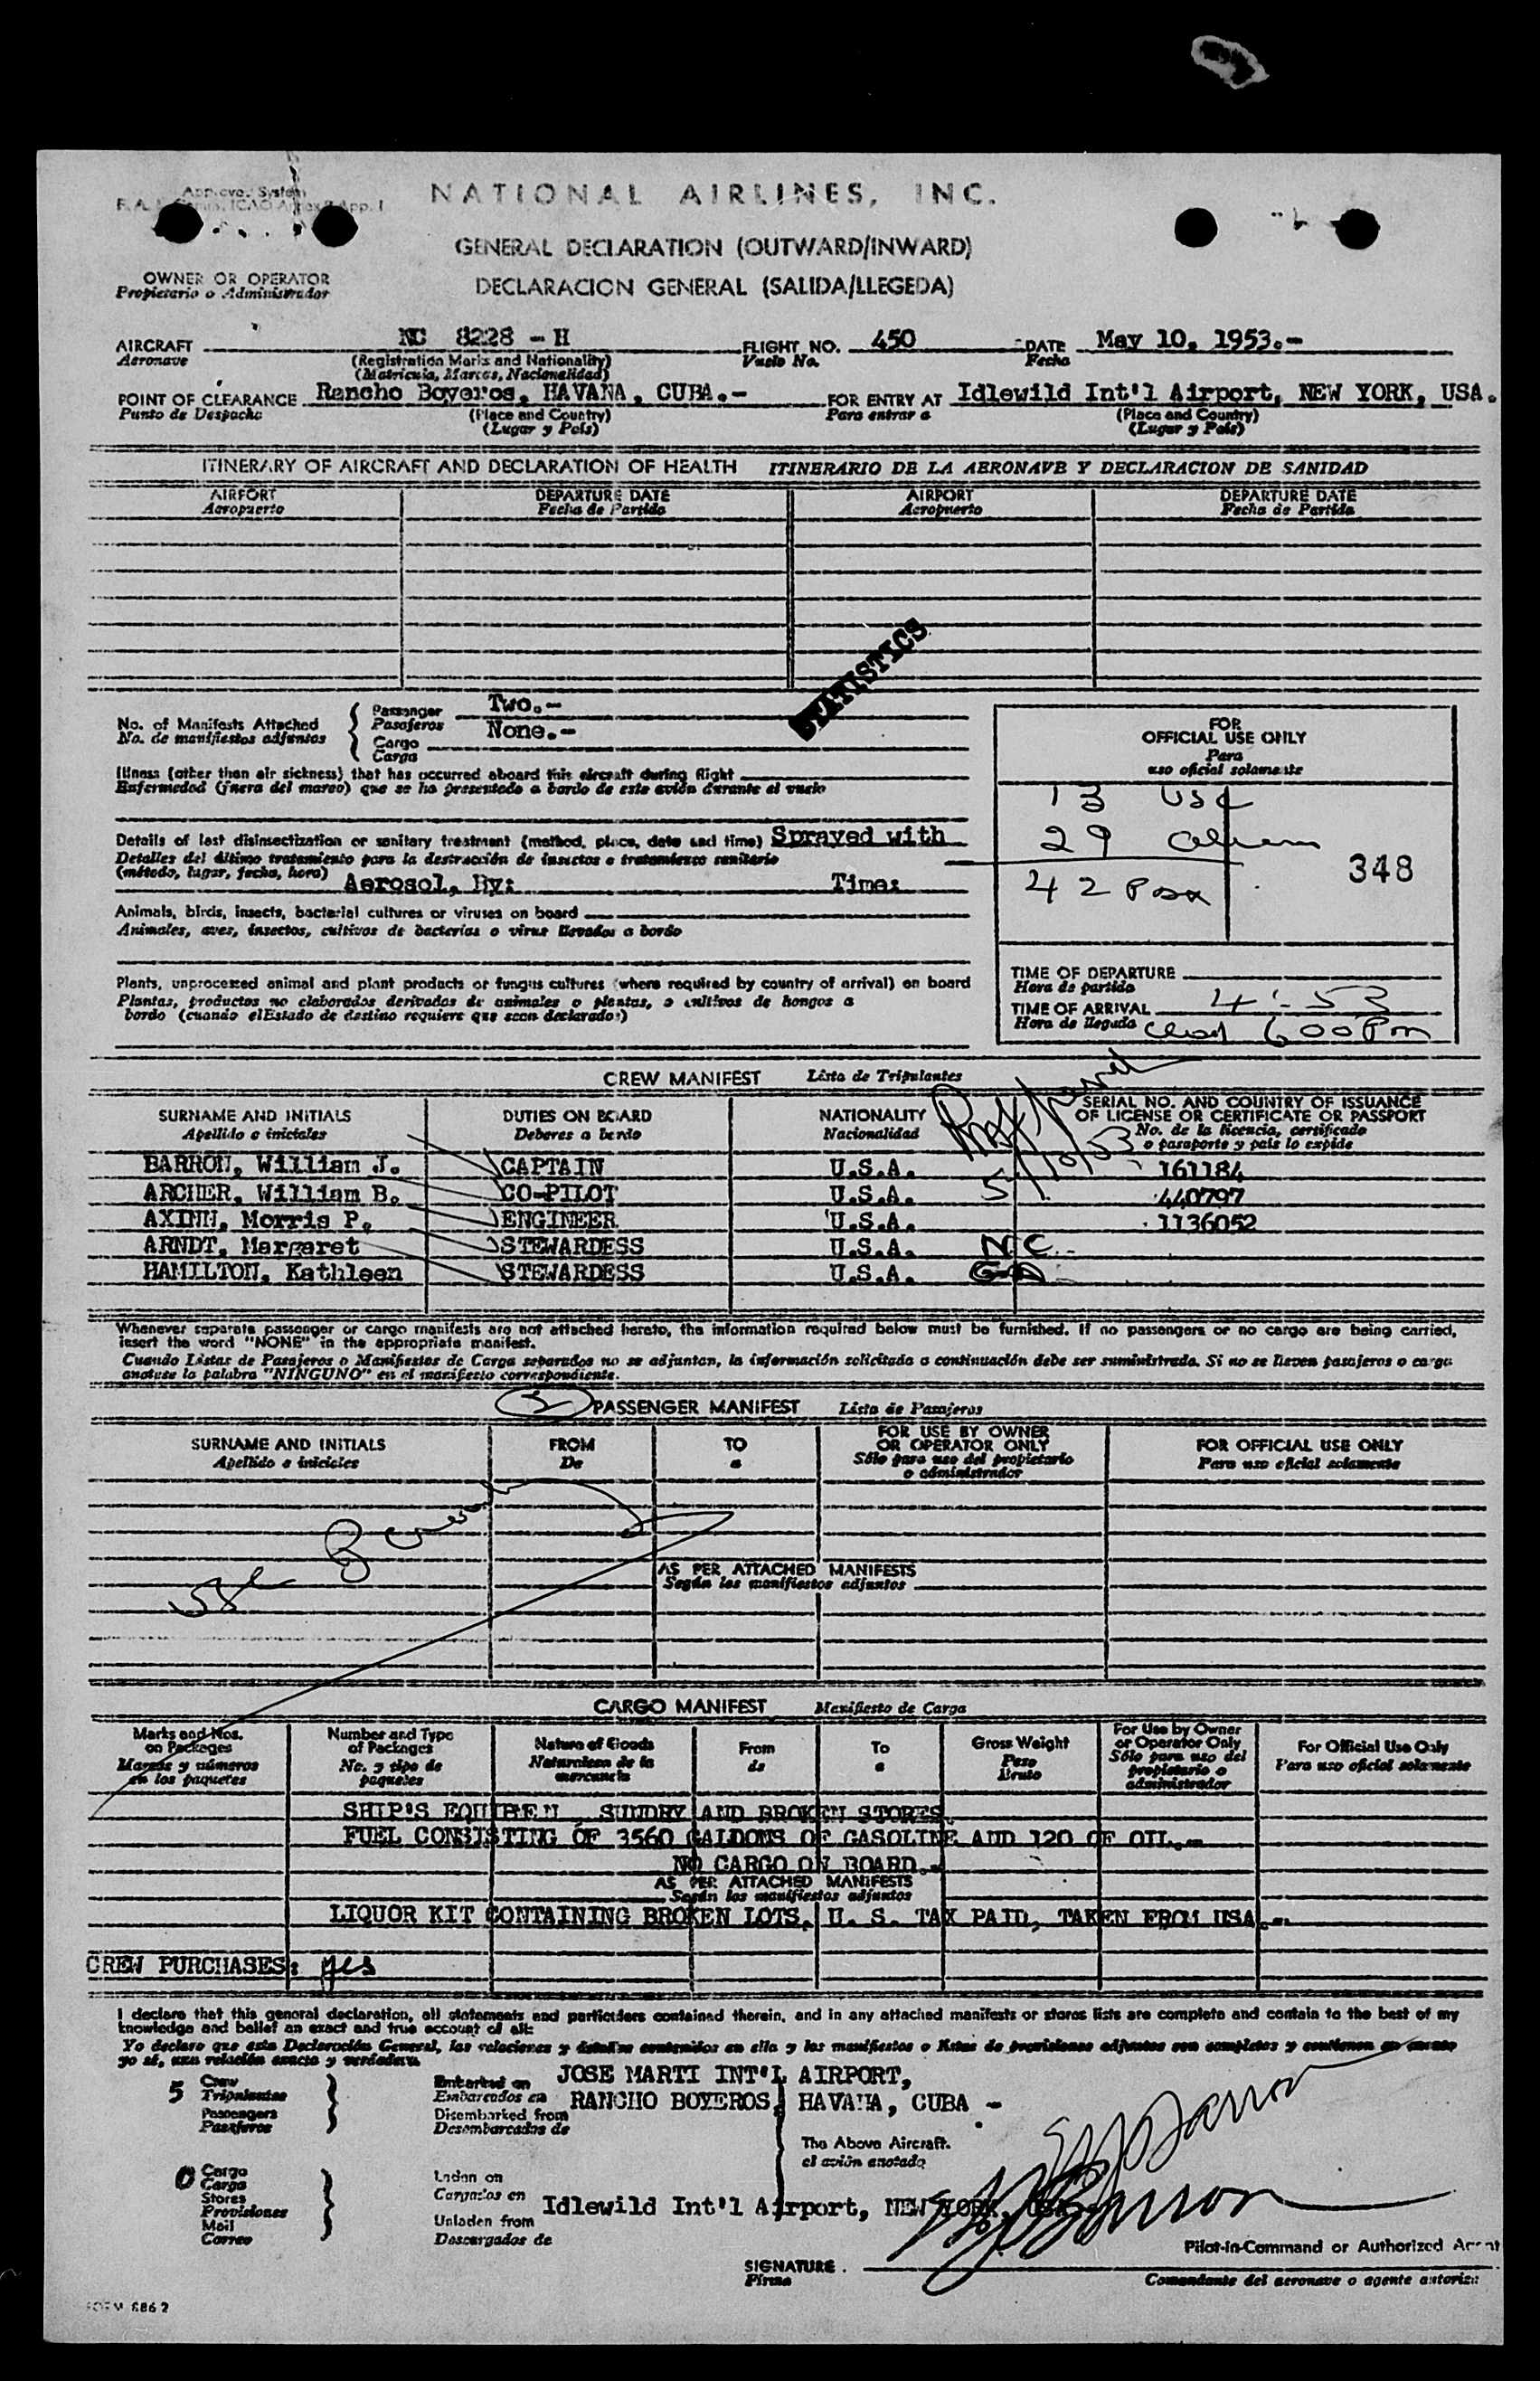 Approved System
NATIONAL AIRLINES, INC.
GENERAL DECLARATION (OUTWARD/INWARD)
OWNER OR OPERATOR
Propietario o Administrador
DECLARACION GENERAL (SALIDA/LLEGEDA)
AIRCRAFT NC 8228 - H FLIGHT NO. 450 DATE May 10, 1953.-
Aeronave (Registration Marks and Nationality) Vuelo No. Fecha
(Matricula, Marcas, Nacionalidad)
POINT OF CLEARANCE Rancho Boyeros, HAVANA, CUBA.- FOR ENTRY AT Idlewild Int'l Airport, NEW YORK, USA.
Punto de Despacho (Place and Country) Para entrar a (Place and Country)
(Lugar y País) (Lugar y País)
ITINERARY OF AIRCRAFT AND DECLARATION OF HEALTH ITINERARIO DE LA AERONAVE Y DECLARACION DE SANIDAD
AIRPORT DEPARTURE DATE AIRPORT DEPARTURE DATE
Aeropuerto Fecha de Partida Aeropuerto Fecha de Partida
STATISTICS
No. of Manifests Attached Passenger Two.-
No. de manifiestos adjuntos Pasajeros None.-
Cargo
Carga
FOR
OFFICIAL USE ONLY
Para
uso oficial solamente
Illness (other than air sickness) that has occurred aboard this aircraft during flight
Enfermedad (fuera del mareo) que se ha presentado a bordo de este avión durante el vuelo
13 USC
Details of last disinsectization or sanitary treatment (method, place, date and time) Sprayed with
29
Detalles del último tratamiento para la destrucción de insectos o tratamiento sanitario
(método, lugar, fecha, hora) Aerosol, By: Time:
42 Pax 348
Animals, birds, insects, bacterial cultures or viruses on board
Animales, aves, insectos, cultivos de bacterias o virus llevados a bordo
Plants, unprocessed animal and plant products or fungus cultures (where required by country of arrival) on board
Plantas, productos no elaborados derivados de animales o plantas, o cultivos de hongos a
bordo (cuando elEstado de destino requiere que sean declarados)
TIME OF DEPARTURE
Hora de partida
TIME OF ARRIVAL 4:53
Hora de llegada 600 Pm
CREW MANIFEST Lista de Tripulantes
SURNAME AND INITIALS DUTIES ON BOARD NATIONALITY SERIAL NO. AND COUNTRY OF ISSUANCE
OF LICENSE OR CERTIFICATE OR PASSPORT
Apellido e iniciales Deberes a bordo Nacionalidad No. de la licencia, certificado
o pasaporte y país lo expide
5/10/53
BARRON, William J. CAPTAIN U.S.A. 161184
ARCHER, William B. CO-PILOT U.S.A. 440797
AXINN, Morris P. ENGINEER U.S.A. 1136052
ARNDT, Margaret STEWARDESS U.S.A. NC
HAMILTON, Kathleen STEWARDESS U.S.A.
Whenever separate passenger or cargo manifests are not attached hereto, the information required below must be furnished. If no passengers or no cargo are being carried,
insert the word "NONE" in the appropriate manifest.
Cuando Listas de Pasajeros o Manifiestos de Carga separados no se adjuntan, la información solicitada a continuación debe ser suministrada. Si no se lleven pasajeros o carga
anotese la palabra "NINGUNO" en el manifiesto correspondiente.
PASSENGER MANIFEST Lista de Pasajeros
SURNAME AND INITIALS FROM TO FOR USE BY OWNER
OR OPERATOR ONLY FOR OFFICIAL USE ONLY
Apellido e iniciales De a Sólo para uso del propietario
o administrador Para uso oficial solamente
AS PER ATTACHED MANIFESTS
Según los manifiestos adjuntos
CARGO MANIFEST Manifiesto de Carga
Marks and Nos.
on Packages
Marcas y números
en los paquetes
Number and Type
of Packages
No. y tipo de
paquetes
Nature of Goods
Naturaleza de la
mercancía
From
de
To
a
Gross Weight
Peso
Bruto
For Use by Owner
or Operator Only
Sólo para uso del
propietario o
administrador
For Official Use Only
Para uso oficial solamente
SHIP'S SUNDRY AND BROKEN STORES
FUEL CONSISTING OF 3560 GALDONS OF GASOLINE AND 120 OF OIL.-
NO CARGO ON BOARD.-
AS PER ATTACHED MANIFESTS
Según los manifiestos adjuntos
LIQUOR KIT CONTAINING BROKEN LOTS, U. S. TAX PAID, TAKEN FROM USA.-
CREW PURCHASES: yes
I declare that this general declaration, all statements and particulars contained therein, and in any attached manifests or stores lists are complete and contain to the best of my
knowledge and belief an exact and true account of all:
Yo declaro que esta Declaración General, las relaciones y detalles contenidos en ella y los manifiestos o listas de provisiones adjuntos son completos y contienen en cuanto
yo sé, una relación exacta y verdadera
5 Crew
Tripulantes
Passengers
Pasajeros
Embarked on JOSE MARTI INT'L AIRPORT,
Embarcados en RANCHO BOYEROS, HAVANA, CUBA -
Disembarked from
Desembarcados de
The Above Aircraft.
el avión anotado
0 Cargo
Carga
Stores
Provisiones
Mail
Correo
Laden on
Cargados en Idlewild Int'l Airport, NEW YORK, USA.
Unladen from
Descargados de
Pilot-in-Command or Authorized Agent
SIGNATURE
Firma
Comandante del aeronave o agente autoriz
FORM 886 2